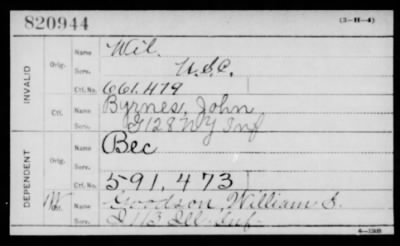 820944
(3-H-4)
INVALID
Orig.
Name
Wil.
Serv.
U.S.C.
Ctf. No.
661.479
Ctf.
Name
Byrnes, John
Serv.
G128 NY Inf
DEPENDENT
Orig.
Name
Bec
Serv.
Ctf. No.
591,473
Name
Goodson, William S.
Serv.
113 Ill. Inf.